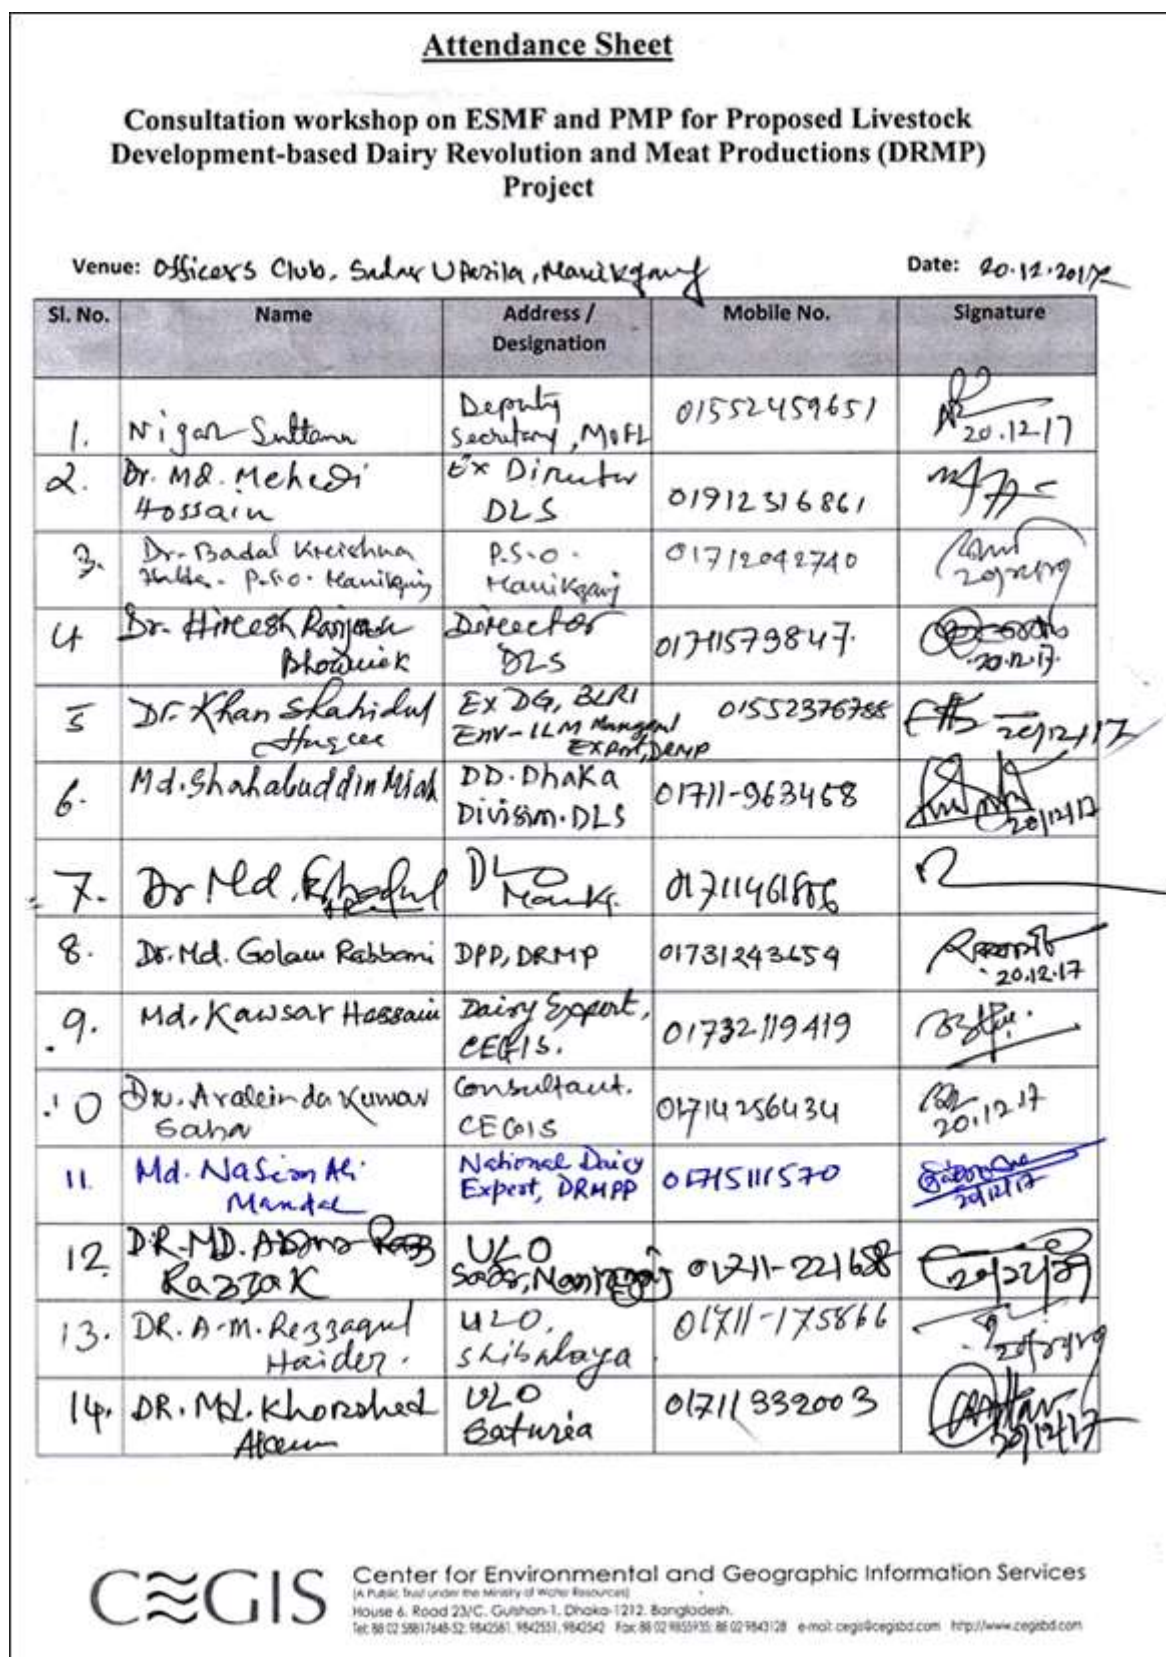 Attendance Sheet
Consultation workshop on ESMF and PMP for Proposed Livestock
Development-based Dairy Revolution and Meat Productions (DRMP)
Project
Venue: Officers Club, Sadar Upazila, Manikganj Date: 20.12.2017
Sl. No. Name Address / Mobile No. Signature
Designation
1. Nigar Sultana Deputy Secretary, MOFL 01552459651 20.12.17
2. Dr. Md. Mehedi Hossain Ex Director DLS 01912316861
3. Dr. Badal Kreishna P.S.O. Manikganj P.S.O. Manikganj 01712042740
4 Dr. Hireesh Ranjan Bhowmick Director DLS 01711579847. 20.12.17.
5 Dr. Khan Shahidul Huque Ex DG, BLRI Expert, DRMP 01552376788 20/12/17
6. Md. Shahabuddin Miah DD. Dhaka Division. DLS 01711-963468 20/12/17
7. Dr Md. DLO 01711461856
8. Dr. Md. Golam Rabbani DPD, DRMP 01731243659 20.12.17
9. Md. Kawsar Hossain Dairy Expert, CEGIS. 01732119419
10 Kumar Saha Consultant. CEGIS 01714256434 20.12.17
11. Md. Nasim Ali Mandal National Dairy Expert, DRMPP 01715111570 20/12/17
12. DR. MD. Razzak ULO Sadar, Manikganj 01711-221658
13. DR. A.M. Rezzaqul Haider. ULO, Shibalaya 01711-175866
14. DR. Md. Khorshed Alam ULO Saturia 01711 332003 20/12/17
CEGIS Center for Environmental and Geographic Information Services
(A Public Trust under the Ministry of Water Resources)
House 6, Road 23/C, Gulshan-1, Dhaka-1212, Bangladesh.
Tel: 88 02 58817648-52, 9842581, 9842551, 9842542 Fax: 88 02 9855935; 88 02 9843128 e-mail: cegis@cegisbd.com http://www.cegisbd.com